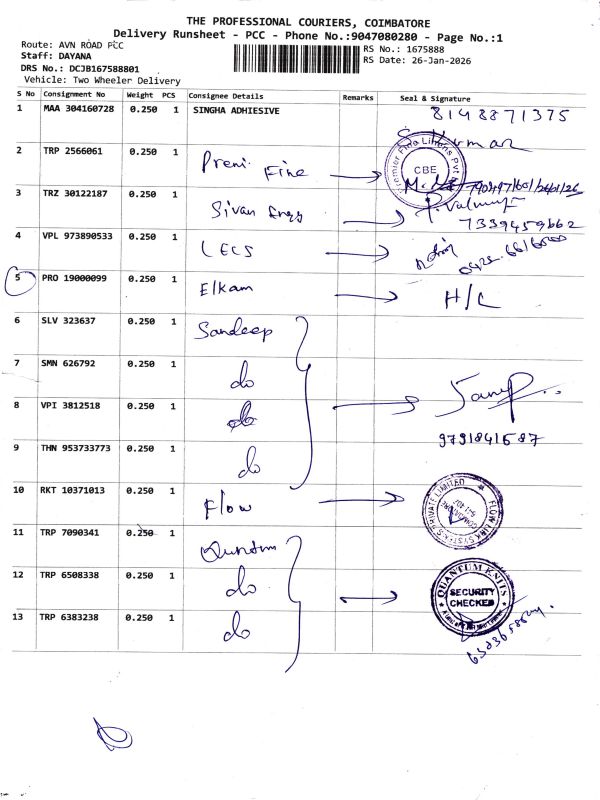 THE PROFESSIONAL COURIERS, COIMBATORE
Delivery Runsheet - PCC - Phone No.:9047080280 - Page No.:1
Route: AVN ROAD PCC
RS No.: 1675888
Staff: DAYANA
RS Date: 26-Jan-2026
DRS No.: DCJB167588801
Vehicle: Two Wheeler Delivery
S No Consignment No Weight PCS Consignee Details Remarks Seal & Signature
1 MAA 304160728 0.250 1 SINGHA ADHIESIVE 8148871375
2 TRP 2566061 0.250 1 Premi Fine
Premier Fine Linens Pvt
CBE
3 TRZ 30122187 0.250 1 Sivan Engg
7339459662
4 VPL 973890533 0.250 1 LECS
5 PRO 19000099 0.250 1 Elkam H/C
6 SLV 323637 0.250 1 Sandeep
7 SMN 626792 0.250 1 do
8 VPI 3812518 0.250 1 do
9791841587
9 THN 953733773 0.250 1 do
10 RKT 10371013 0.250 1 Flow
FLOW LINK SYSTEMS PRIVATE LIMITED
11 TRP 7090341 0.250 1 Quntum
12 TRP 6508338 0.250 1 do
QUANTUM KNITS
SECURITY
CHECKED
13 TRP 6383238 0.250 1 do